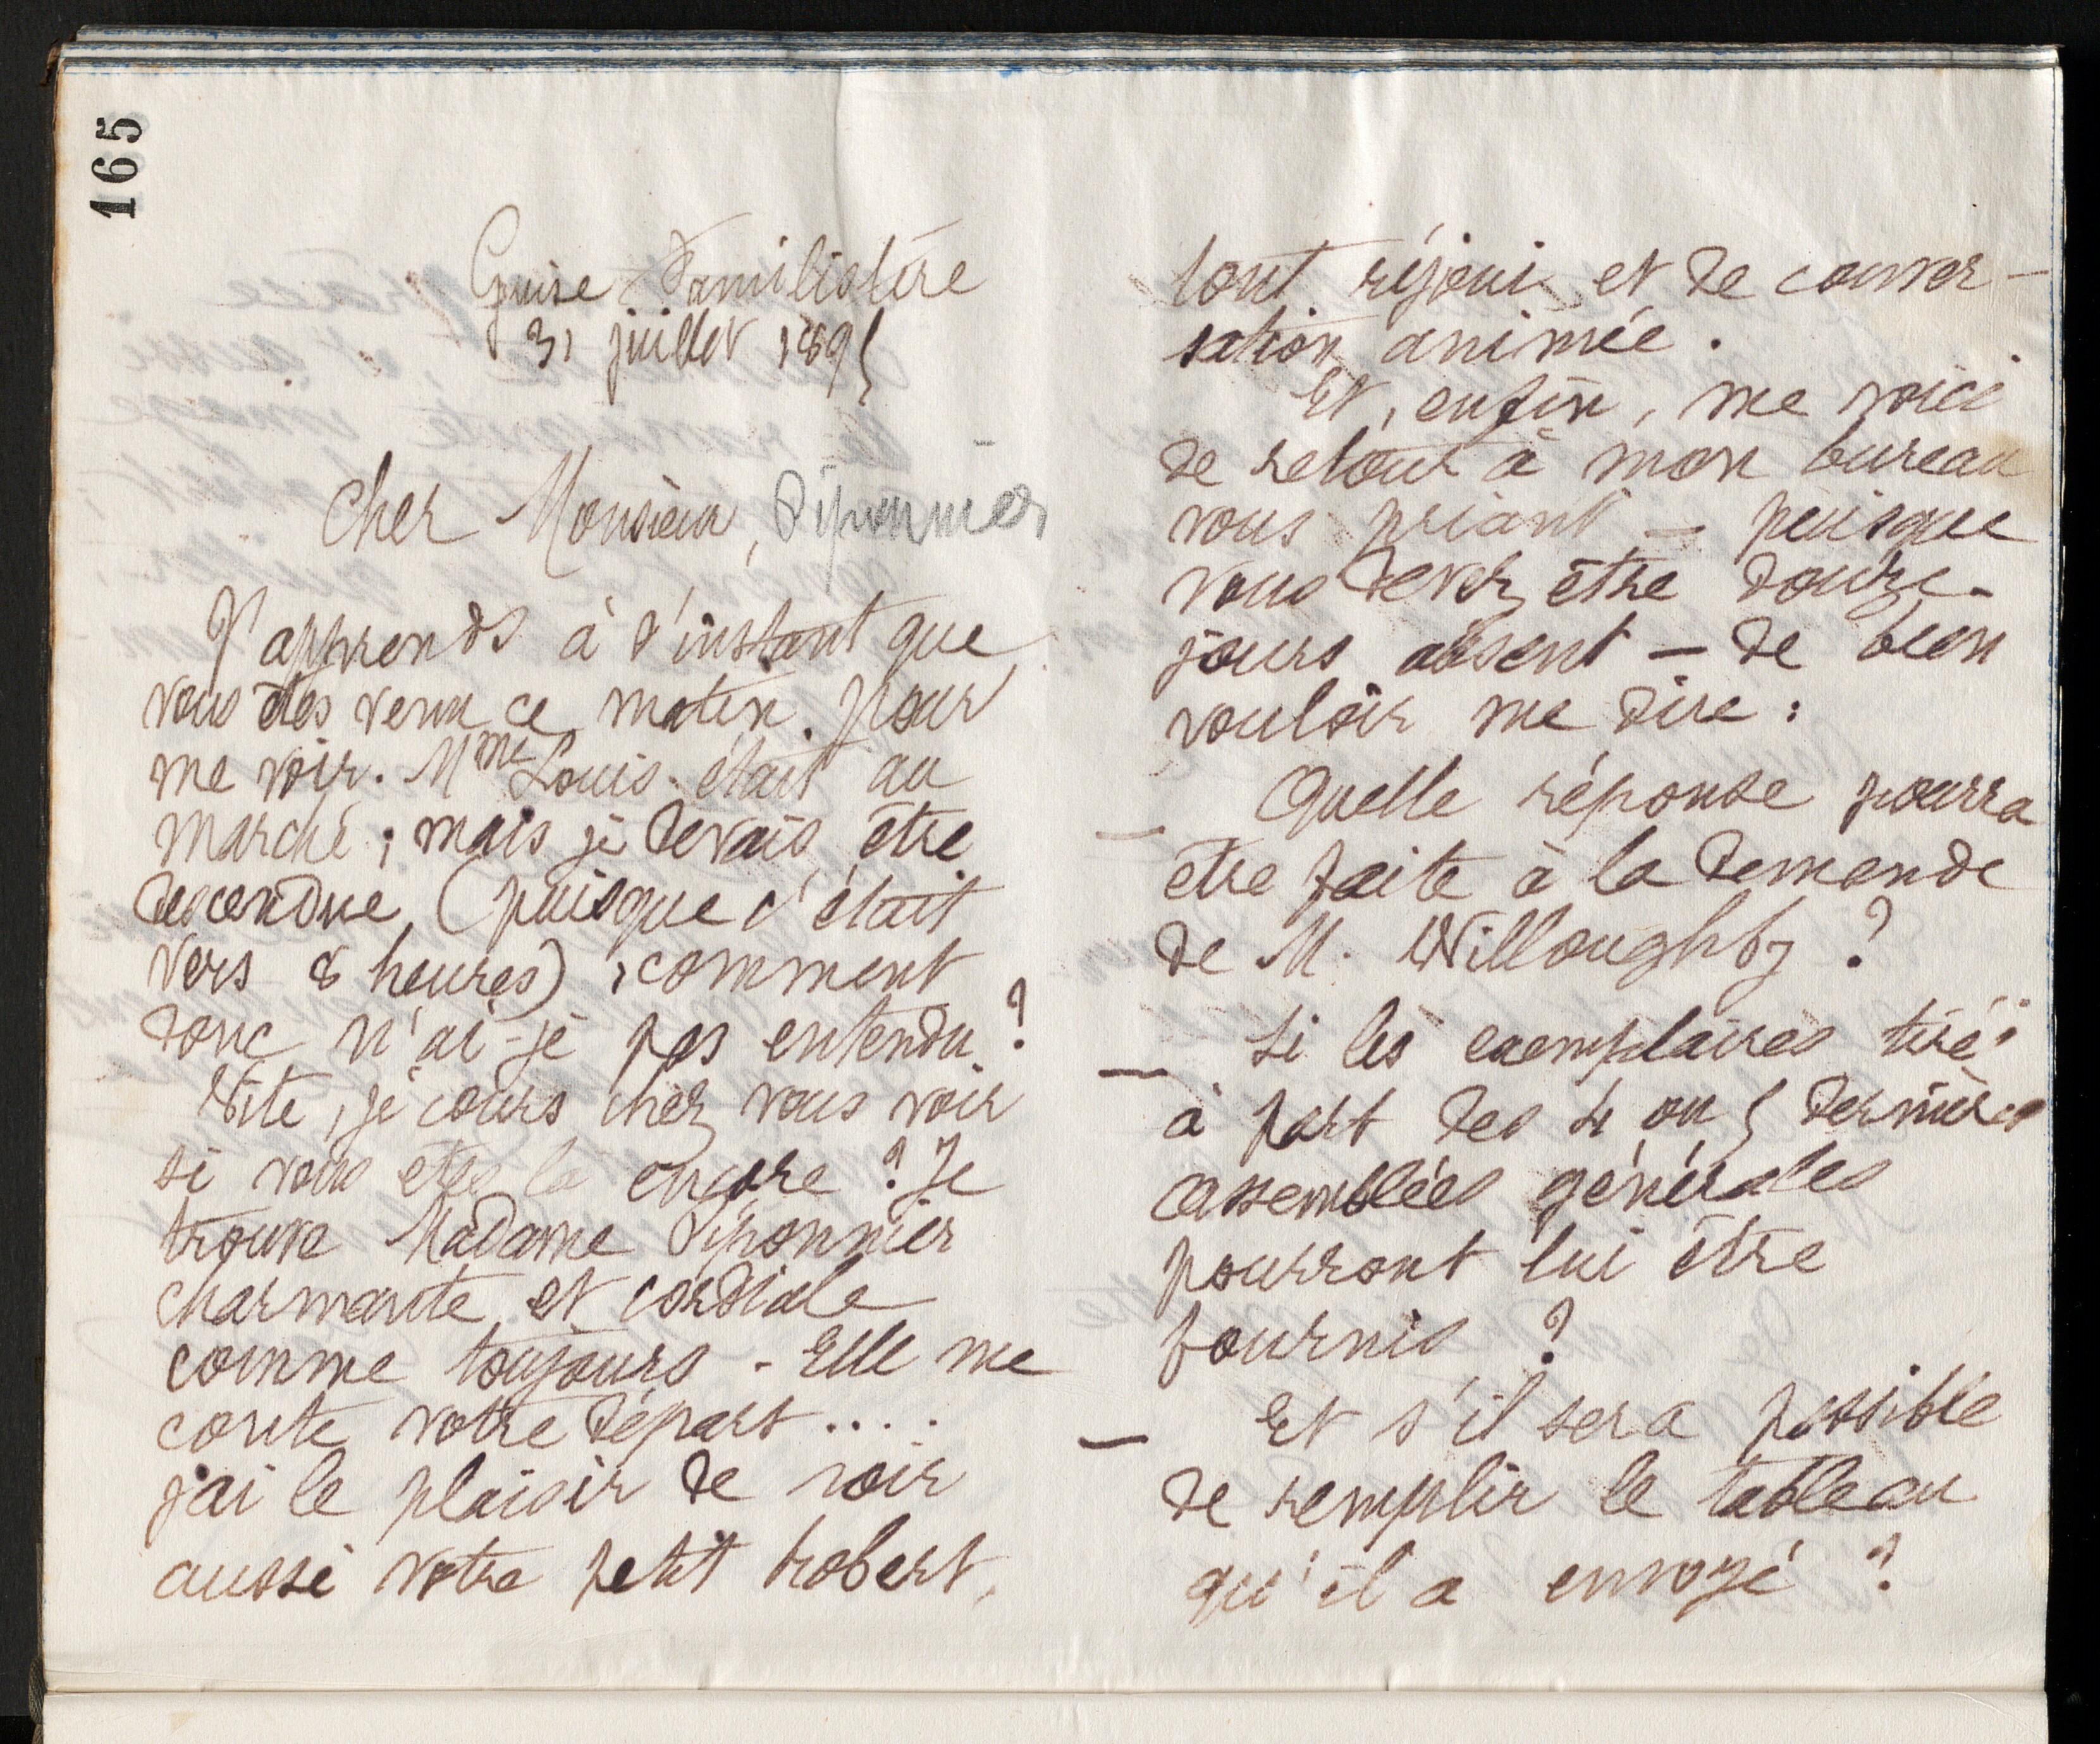 165
Guise Familistère
31 juillet 1895
Cher Monsieur, Sipmnier
J'apprends à l'instant que
vous êtes venu ce matin pour
me voir. Mme Louis était au
marché ; mais je devais être
descendue (puisque c'était
vers 8 heures) ; comment
donc n'ai-je pas entendu ?
Vite, je cours chez vous voir
si vous etes là encore ? Je
trouve Madame Siponnier
charmante et cordiale
comme toujours. Elle me
conte votre départ....
j'ai le plaisir de voir
aussi votre petit Robert,
tout réjoui et de conver-
sation animée.
Et, enfin, me voici
de retour à mon bureau
vous priant — puisque
vous devez être douze
jours absent — de bien
vouloir me dire :
— Quelle réponse pourra
être faite à la demande
de M. Willoughby ?
— Si les exemplaires tirés
à part des 4 ou 5 dernières
assemblées générales
pourront lui être
fournis ?
— Et s'il sera possible
de remplir le tableau
qu'il a envoyé ?